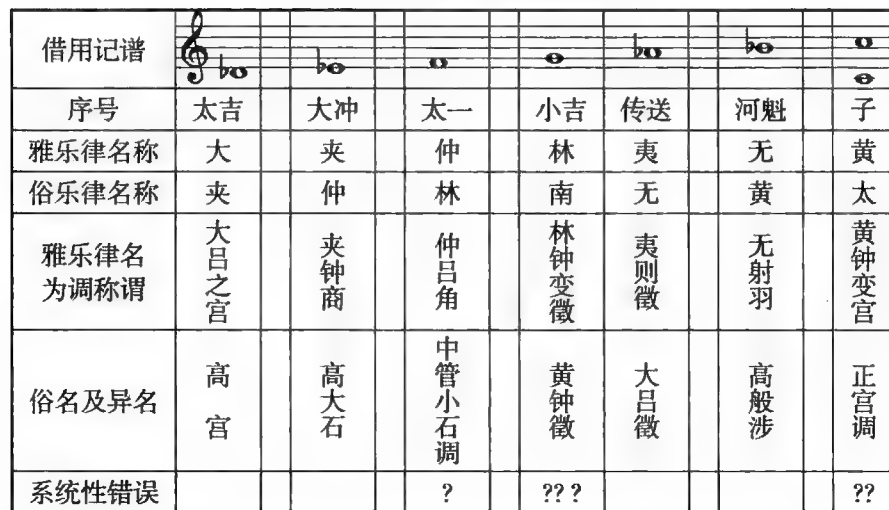 借用记谱
序号 太吉 大冲 太一 小吉 传送 河魁 子
雅乐律名称 大 夹 仲 林 夷 无 黄
俗乐律名称 夹 仲 林 南 无 黄 太
雅乐律名为调称谓 大吕之宫 夹钟商 仲吕角 林钟变徵 夷则徵 无射羽 黄钟变宫
俗名及异名 高宫 高大石 中管小石调 黄钟徵 大吕徵 高般涉 正宫调
系统性错误 ? ??? ??